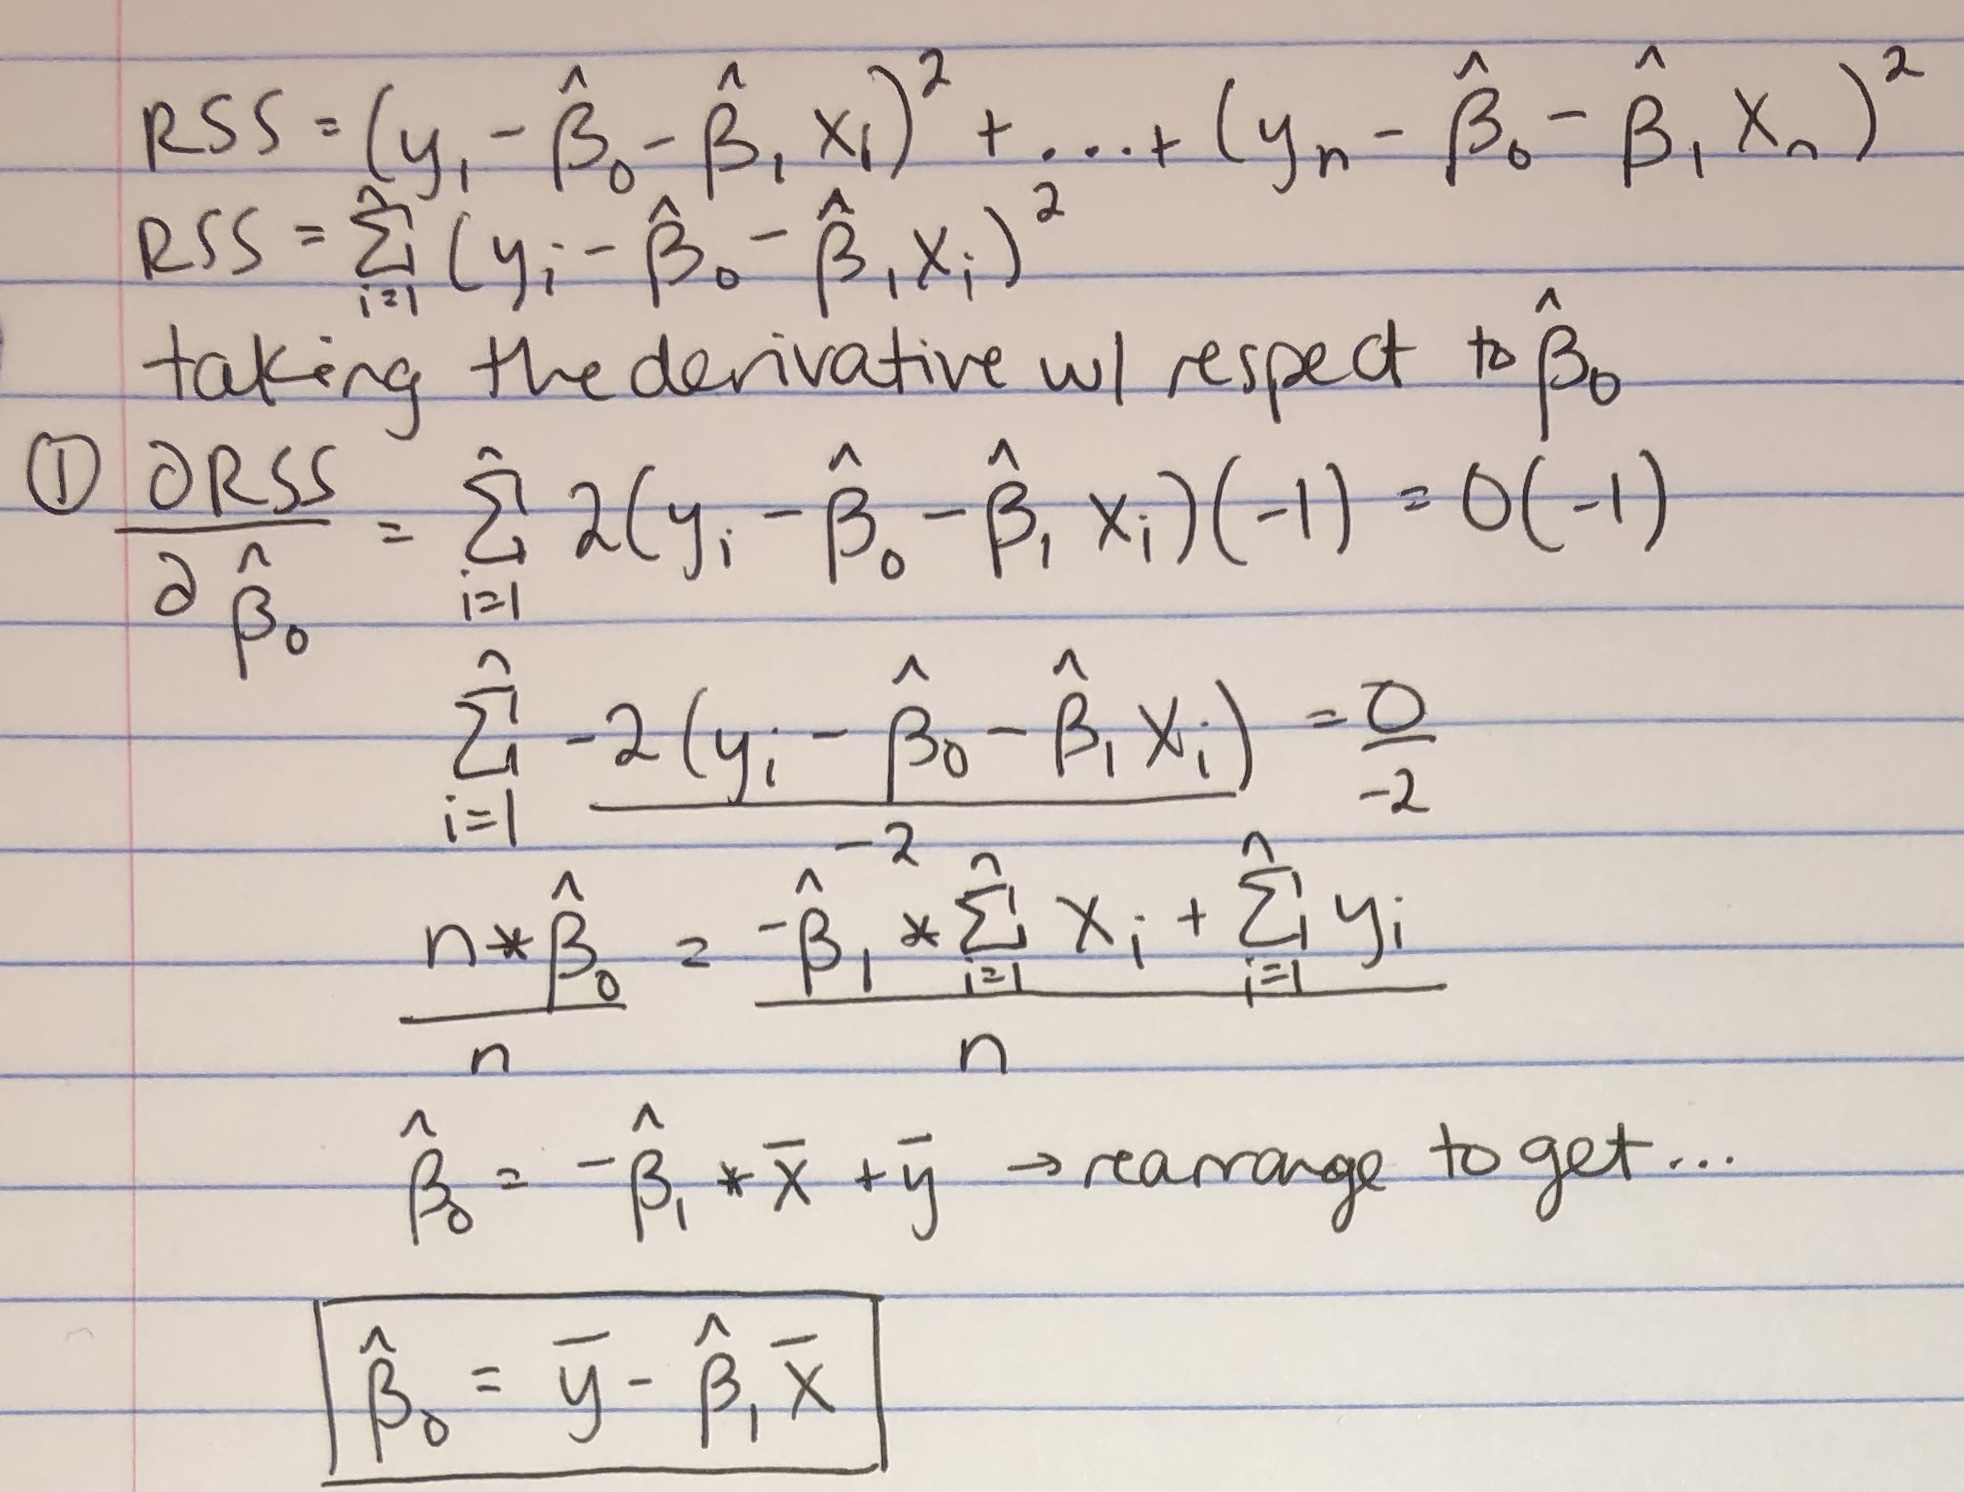 RSS = (y₁ - β̂₀ - β̂₁ x₁)² + ... + (yₙ - β̂₀ - β̂₁ xₙ)²
RSS = Σⁿᵢ₌₁ (yᵢ - β̂₀ - β̂₁ xᵢ)²
taking the derivative w/ respect to β̂₀
① ∂RSS/∂β̂₀ = Σⁿᵢ₌₁ 2(yᵢ - β̂₀ - β̂₁ xᵢ)(-1) = 0(-1)
Σⁿᵢ₌₁ -2(yᵢ - β̂₀ - β̂₁ xᵢ)/-2 = 0/-2
n*β̂₀/n = (-β̂₁ * Σⁿᵢ₌₁ xᵢ + Σⁿᵢ₌₁ yᵢ)/n
β̂₀ = -β̂₁ * x̄ + ȳ → rearrange to get...
β̂₀ = ȳ - β̂₁ x̄